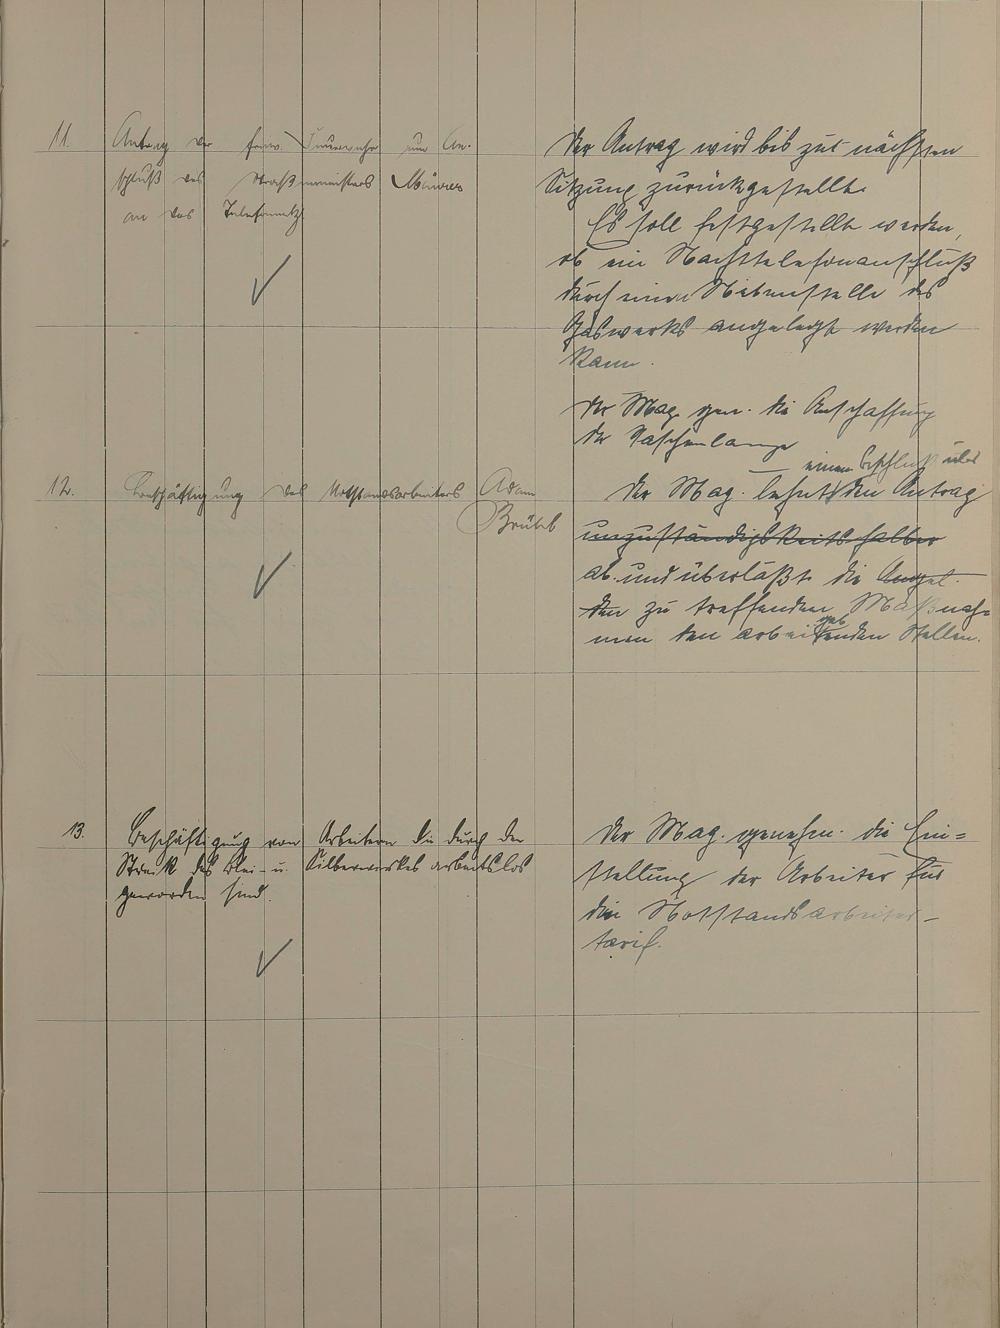 11.
Antrag der freiw. Feuerwehr um An-
schluß des Maurer
an das Telefonnetz
Der Antrag wird bis zur nächsten
Sitzung zurückgestellt.
Es soll festgestellt werden,
ob ein Nachttelefonanschluß
durch eine Nebenstelle des
Gaswerks angelegt werden
kann.
Der Mag. gen. die Anschaffung
der
12.
Beschäftigung des Notstandsarbeiters Adam
Brühl
einen Beschluß über
Der Mag. lehnt den Antrag
unzuständigkeitshalber
ab und überläßt die Angel.
den zu treffenden Maßnah-
men den arbeitgebenden Stellen.
13.
Beschäftigung von Arbeitern die durch den
Streik des Blei- u. Silberwerkes arbeitslos
geworden sind.
Der Mag. genehm. die Ein-
stellung der Arbeiter für
den Notstandsarbeiter-
tarif.